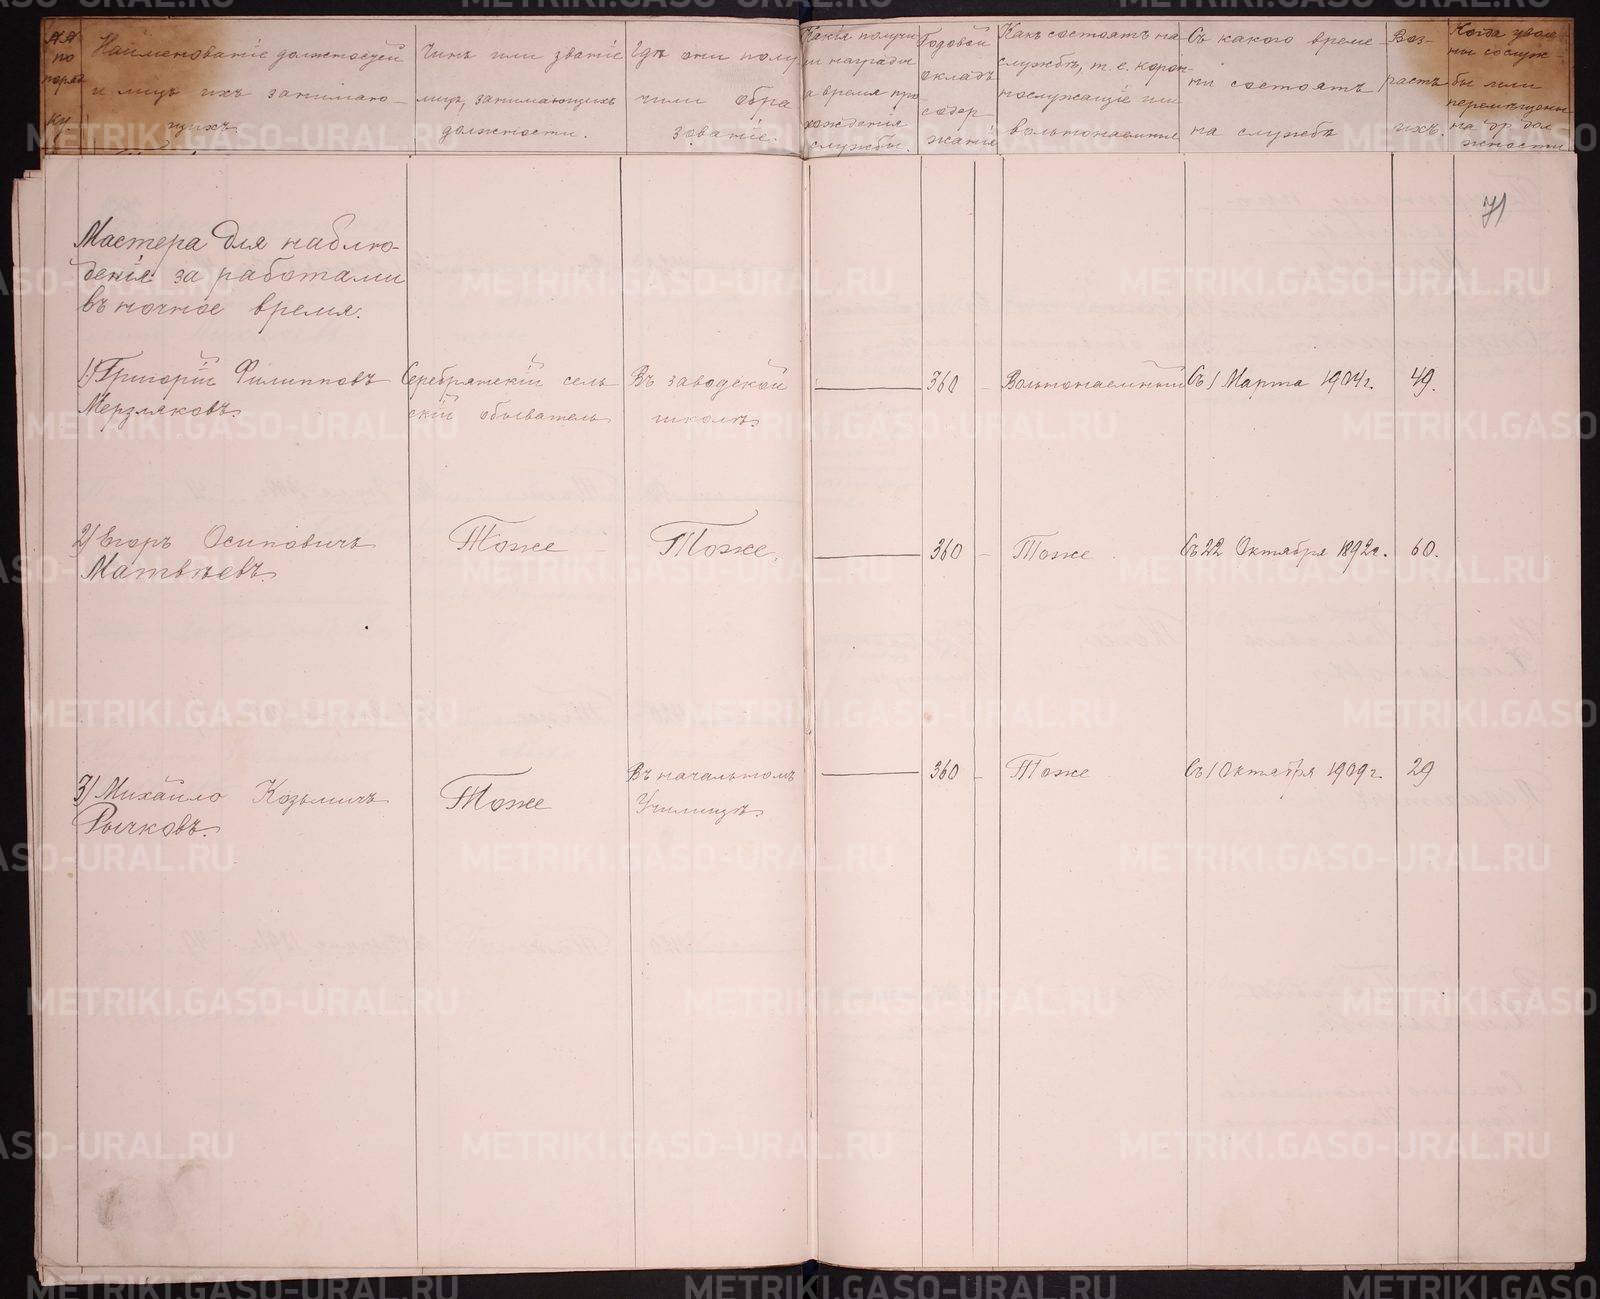 №№ по поряд ку
Наименованіе должностей
и лицъ ихъ занимаю-
щихъ
Чинъ или званіе
лицъ, занимающихъ
должности.
Гдѣ они полу
чили обра
зованіе.
Какія получи
ли награды
за время про
хожденія
службы.
Годовой
окладъ
содер
жанія
Какъ состоятъ на
службѣ, т. е. корон-
нослужащіе или
вольнонаемные
Съ какого време-
ни состоятъ
на службѣ
Воз-
растъ
ихъ.
Когда уволе
ны со служ-
бы или
перемѣщены
на др. дол
жности
71
Мастера для наблю-
денія за работами
въ ночное время.
1) Григорій Филипповъ Серебрянскій сель Въ заводской 360 Вольнонаемный Съ 1 Марта 1904 г. 49.
Мерзляковъ скій обыватель школѣ
2) Егоръ Осиповичъ Тоже Тоже, 360 Тоже Съ 22 Октября 1892 г. 60.
Матвѣевъ
3) Михайло Козьмичъ Тоже Въ начальномъ 360 Тоже Съ 1 Октября 1909 г. 29
Рычковъ. Училищѣ
METRIKI.GASO-URAL.RU